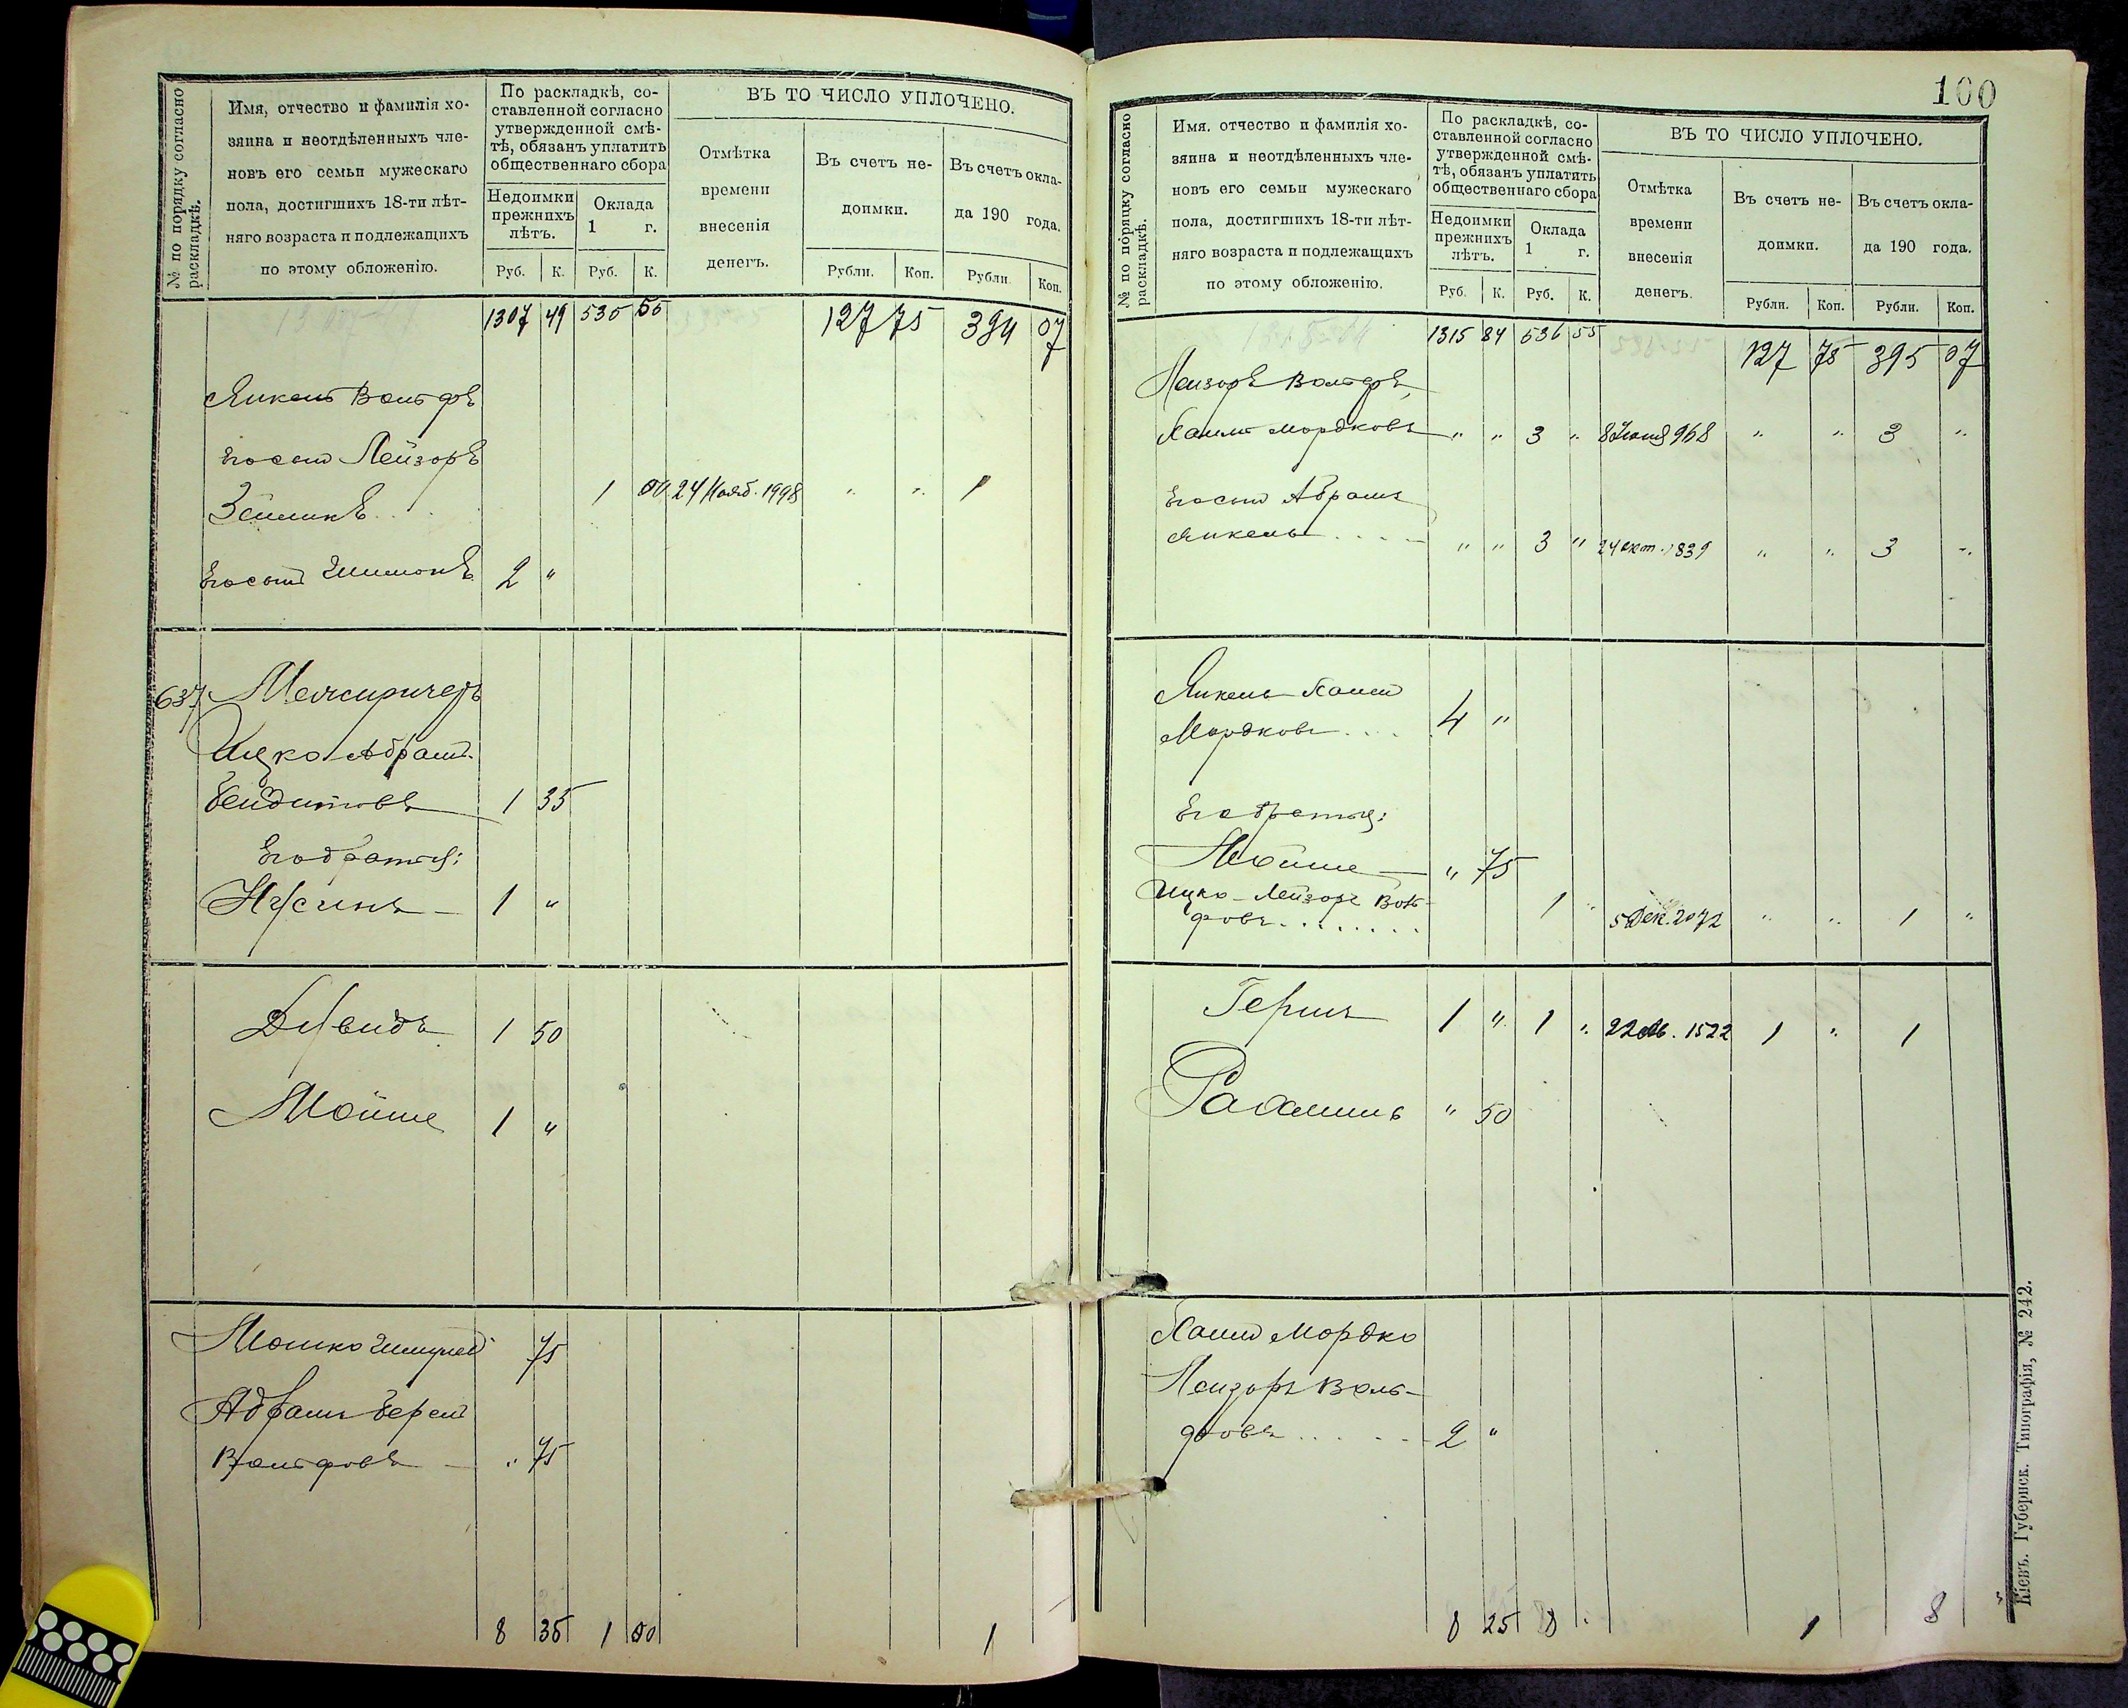 № по порядку согласно раскладкѣ.
Имя, отчество и фамилія хо-
зяина и неотдѣленныхъ чле-
новъ его семьи мужескаго
пола, достигшихъ 18-ти лѣт-
няго возраста и подлежащихъ
по этому обложенію.
По раскладкѣ, со-
ставленной согласно
утвержденной смѣ-
тѣ, обязанъ уплатить
общественнаго сбора
Недоимки
прежнихъ
лѣтъ.
Оклада
1 г.
Руб. К. Руб. К.
ВЪ ТО ЧИСЛО УПЛОЧЕНО.
Отмѣтка
времени
внесенія
денегъ.
Въ счетъ не-
доимки.
Въ счетъ окла-
да 190 года.
Рубли. Коп. Рубли. Коп.
1307 49 535 55 127 75 394 07
Янкель Вольфъ
Его сынъ Лейзоръ
Зейликъ 1 00 24 Нояб. 1998 " " 1
Его сынъ Шимонъ 2 "
637 Межиричеръ
Ицко Абрам.
1 35
Его братья:
Нусинъ 1 "
Дувидъ 1 50
Мойше 1 "
Мошко Шмулев 75
Абрамъ Берел
Вольфовъ " 75
8 35 1 00 1
100
№ по порядку согласно раскладкѣ.
Имя. отчество и фамилія хо-
зяина и неотдѣленныхъ чле-
новъ его семьи мужескаго
пола, достигшихъ 18-ти лѣт-
няго возраста и подлежащихъ
по этому обложенію.
По раскладкѣ, со-
ставленной согласно
утвержденной смѣ-
тѣ, обязанъ уплатить
общественнаго сбора
Недоимки
прежнихъ
лѣтъ.
Оклада
1 г.
Руб. К. Руб. К.
ВЪ ТО ЧИСЛО УПЛОЧЕНО.
Отмѣтка
времени
внесенія
денегъ.
Въ счетъ не-
доимки.
Въ счетъ окла-
да 190 года.
Рубли. Коп. Рубли. Коп.
1315 84 536 55 127 75 395 07
Лейзоръ Вольфъ
Хаимъ Мордковъ " " 3 " 8 Іюня 968 " " 3 "
Его сынъ Абрамъ
Янкель . . . . " " 3 " 24 окт. 1839 " " 3 "
Янкель Хаим
Мордковъ . . . . 4 "
Его братья:
Мойше " 75
Ицко-Лейзоръ Воль-
фовъ . . . . . . . . 1 " 5 Дек. 2072 " " 1 "
Гершъ 1 " 1 " 22 1522 1 " 1
Рахмиль " 50
Хаим Мордко
Лейзоръ Воль-
фовъ . . . . . 2 "
8 25 8 " 1 8
Кіевъ. Губернск. Типографія, № 242.